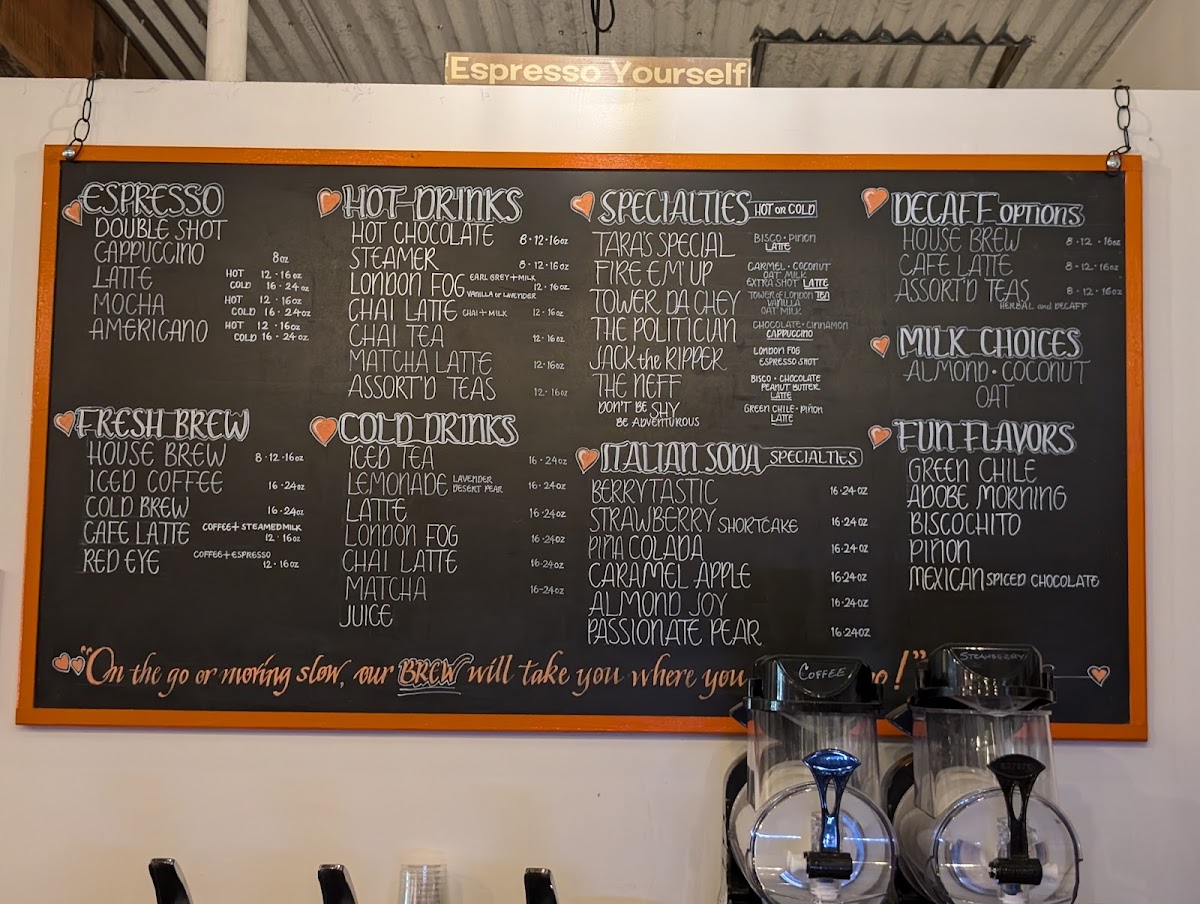 Espresso Yourself
ESPRESSO
DOUBLE SHOT
CAPPUCCINO 8oz
LATTE HOT 12·16oz
COLD 16·24oz
MOCHA HOT 12·16oz
COLD 16·24oz
AMERICANO HOT 12·16oz
COLD 16·24oz
FRESH BREW
HOUSE BREW 8·12·16oz
ICED COFFEE 16·24oz
COLD BREW 16·24oz
CAFE LATTE COFFEE+STEAMED MILK
12·16oz
RED EYE COFFEE+ESPRESSO
12·16oz
HOT DRINKS
HOT CHOCOLATE 8·12·16oz
STEAMER 8·12·16oz
LONDON FOG EARL GREY+MILK
VANILLA or LAVENDER 12·16oz
CHAI LATTE CHAI+MILK 12·16oz
CHAI TEA 12·16oz
MATCHA LATTE 12·16oz
ASSORT'D TEAS 12·16oz
COLD DRINKS
ICED TEA 16·24oz
LEMONADE LAVENDER
DESERT PEAR 16·24oz
LATTE 16·24oz
LONDON FOG 16·24oz
CHAI LATTE 16-24oz
MATCHA 16-24oz
JUICE
SPECIALTIES HOT OR COLD
TARA'S SPECIAL BISCO·PIÑON
LATTE
FIRE EM' UP CARMEL·COCONUT
OAT MILK
EXTRA SHOT LATTE
TOWER DA CHEY TOWER of LONDON TEA
VANILLA
OAT MILK
THE POLITICIAN CHOCOLATE·CINNAMON
CAPPUCCINO
JACK the RIPPER LONDON FOG
ESPRESSO SHOT
THE NEFF BISCO·CHOCOLATE
PEANUT BUTTER
LATTE
DON'T BE SHY GREEN CHILE·PIÑON
BE ADVENTUROUS LATTE
ITALIAN SODA SPECIALTIES
BERRYTASTIC 16·24oz
STRAWBERRY SHORTCAKE 16·24oz
PIÑA COLADA 16·24oz
CARAMEL APPLE 16·24oz
ALMOND JOY 16·24oz
PASSIONATE PEAR 16·24oz
DECAFF OPTIONS
HOUSE BREW 8·12·16oz
CAFE LATTE 8·12·16oz
ASSORT'D TEAS 8·12·16oz
HERBAL and DECAFF
MILK CHOICES
ALMOND·COCONUT
OAT
FUN FLAVORS
GREEN CHILE
ADOBE MORNING
BISCOCHITO
PIÑON
MEXICAN SPICED CHOCOLATE
"On the go or moving slow, our BREW will take you where you go!"
COFFEE
STRAWBERRY